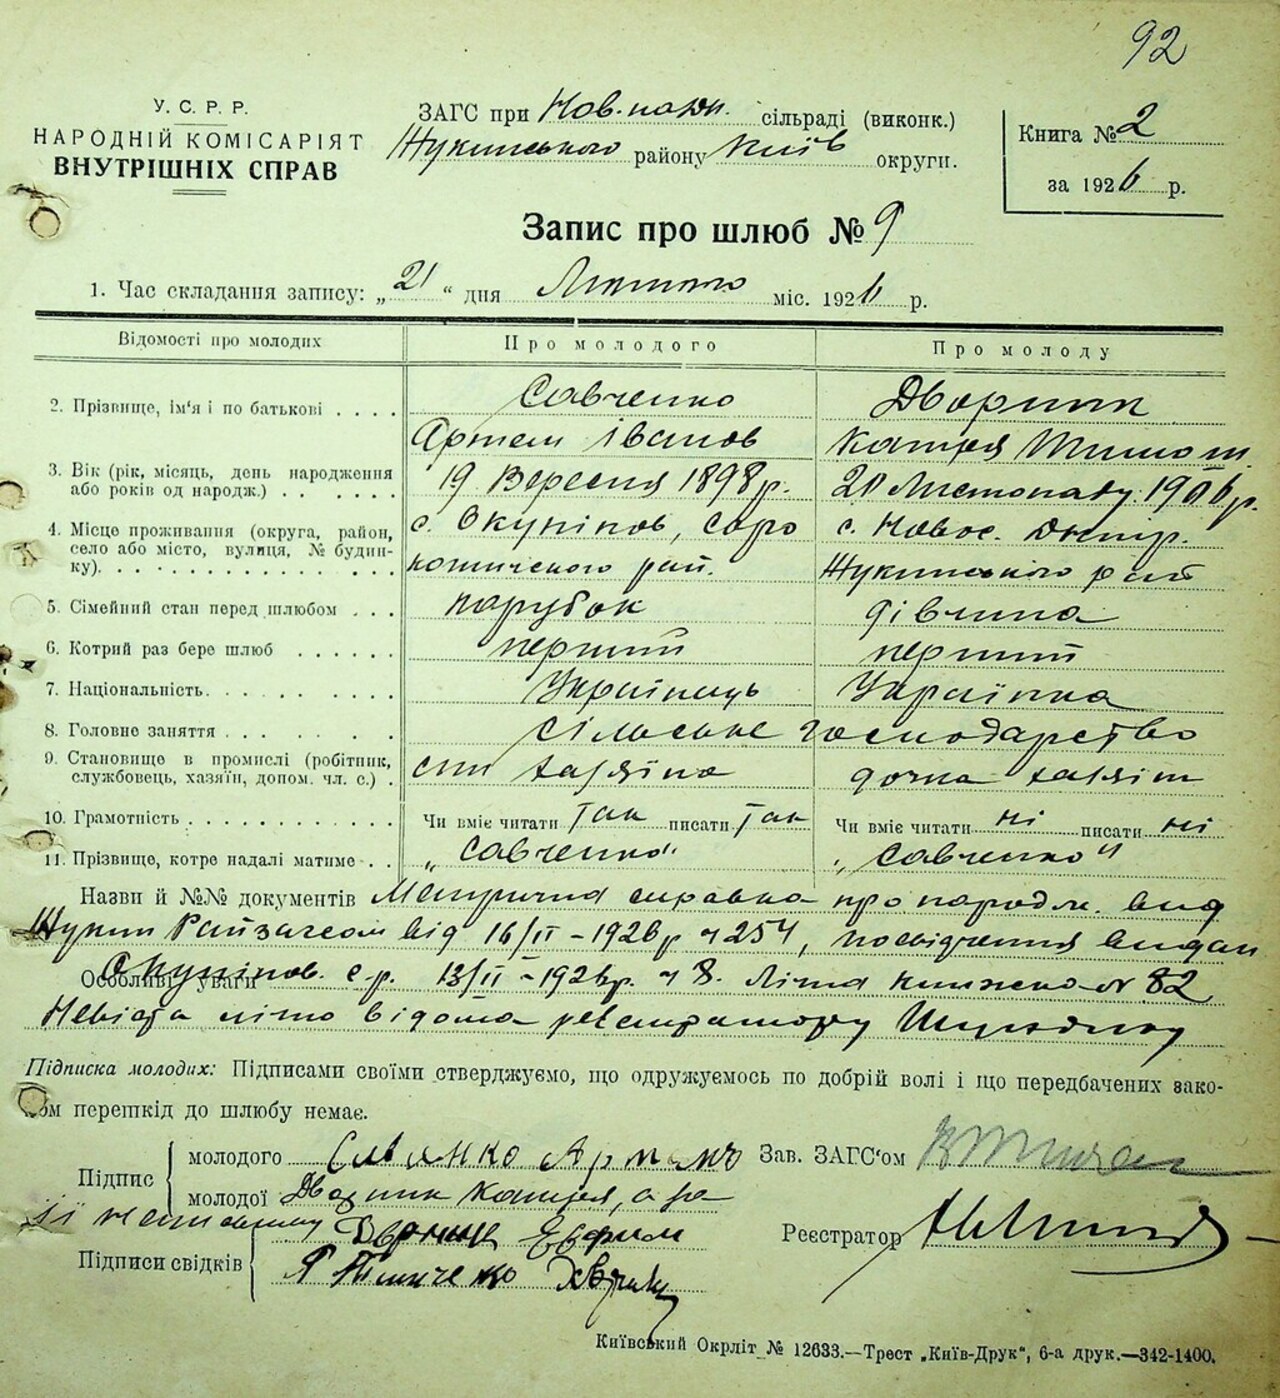 92
У. С. Р. Р.
НАРОДНІЙ КОМІСАРІЯТ
ВНУТРІШНІХ СПРАВ
ЗАГС при Нов. сільраді (виконк.)
Жукинського району Київ округи.
Книга № 2
за 1926 р.
Запис про шлюб № 9
1. Час складання запису: „21“ дня Лютого міс. 1926 р.
Відомості про молодих Про молодого Про молоду
2. Прізвище, ім'я і по батькові . . . . Савченко Дворник
Артем Іванов Катря Тимош.
3. Вік (рік, місяць, день народження 19 Вересня 1898 р. 20 Листопаду 1906 р.
або років од народж.) . . . . .
4. Місце проживання (округа, район, с. Окунінов, Соро с. Новос. Дніпр.
село або місто, вулиця, № будин-
ку). . . . . . . . . . . . . . котичського рай. Жукинського рай
5. Сімейний стан перед шлюбом . . . парубок дівчина
6. Котрий раз бере шлюб . . . . . . перший перший
7. Національність. . . . . . . . . . Українець Українка
8. Головне заняття . . . . . . . . сільське господарство
9. Становище в промислі (робітник, син хазяїна дочка хазяїна
службовець, хазяїн, допом. чл. с.) .
10. Грамотність . . . . . . . . . . . Чи вміє читати так писати так Чи вміє читати ні писати ні
11. Прізвище, котре надалі матиме . . „Савченко“ „Савченко“
Назви й №№ документів Метрична справка про народж. вид
Жукин Райзагсом від 16/II – 1926 р ч 254, посвідчення видан
Особливі уваги Окунінов. с.р. 13/II – 1926 р. ч 8. книжка № 82
відома реєстратору
Підписка молодих: Підписами своїми стверджуємо, що одружуємось по добрій волі і що передбачених зако-
ном перешкід до шлюбу немає.
Підпис молодого Савченко Артем Зав. ЗАГС'ом
молодої Дворник Катря, а за
її неписьмену Дворник Евфим Реєстратор
Підписи свідків Я
Київський Окрліт № 12633.—Трест „Київ-Друк“, 6-а друк.—342-1400.